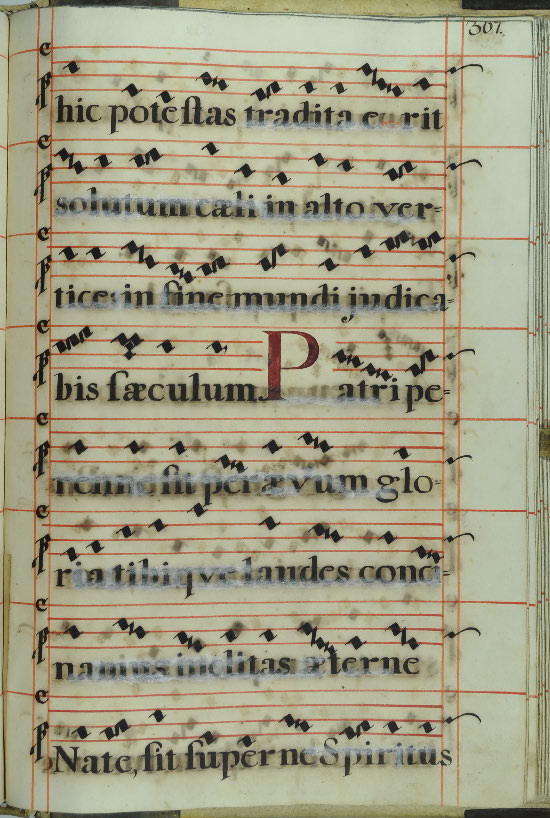 307.
hic poteſtas tradita erit
solutum cæli in alto ver-
tice: in fine mundi judica-
bis ſæculum. Patri pe-
renne ſit per ævum glo-
ria tibique laudes conci-
namus inclitas æterne
Nate, ſit ſuperne Spiritus